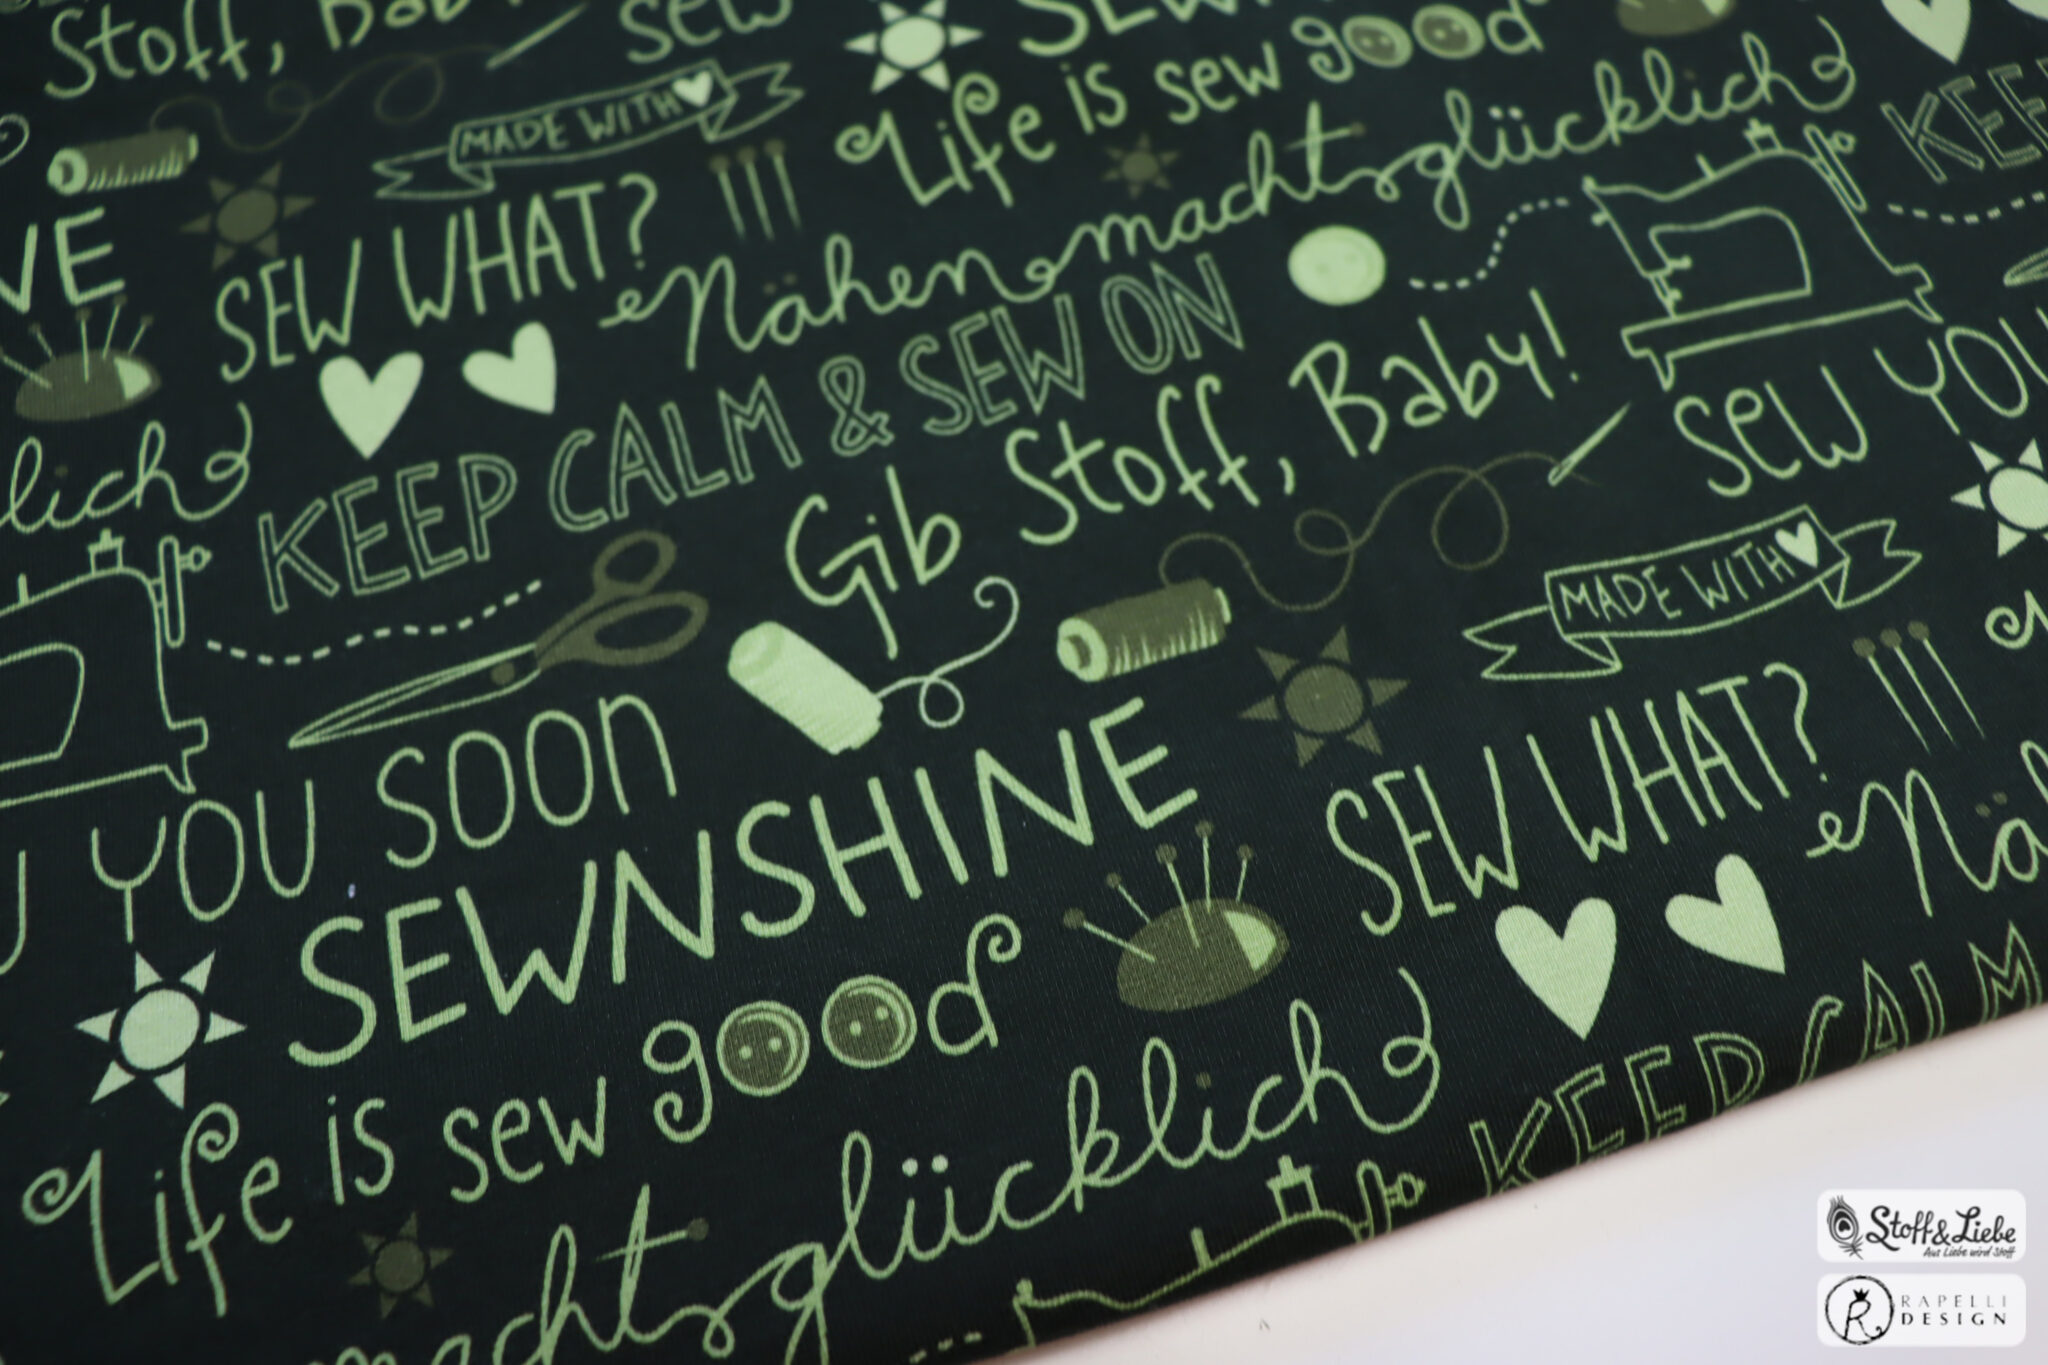 Stoff, Baby
SEW
MADE WITH
Life is sew good
SEW WHAT?
Nähen macht glücklich
KEEP
VE
KEEP CALM & SEW ON
Gib Stoff, Baby!
SEW YOU
lich
MADE WITH
YOU SOON
SEWNSHINE
SEW WHAT?
Nä
Life is sew good
macht glücklich
KEEP CALM
Stoff & Liebe
Aus Liebe wird Stoff
RAPELLI
DESIGN